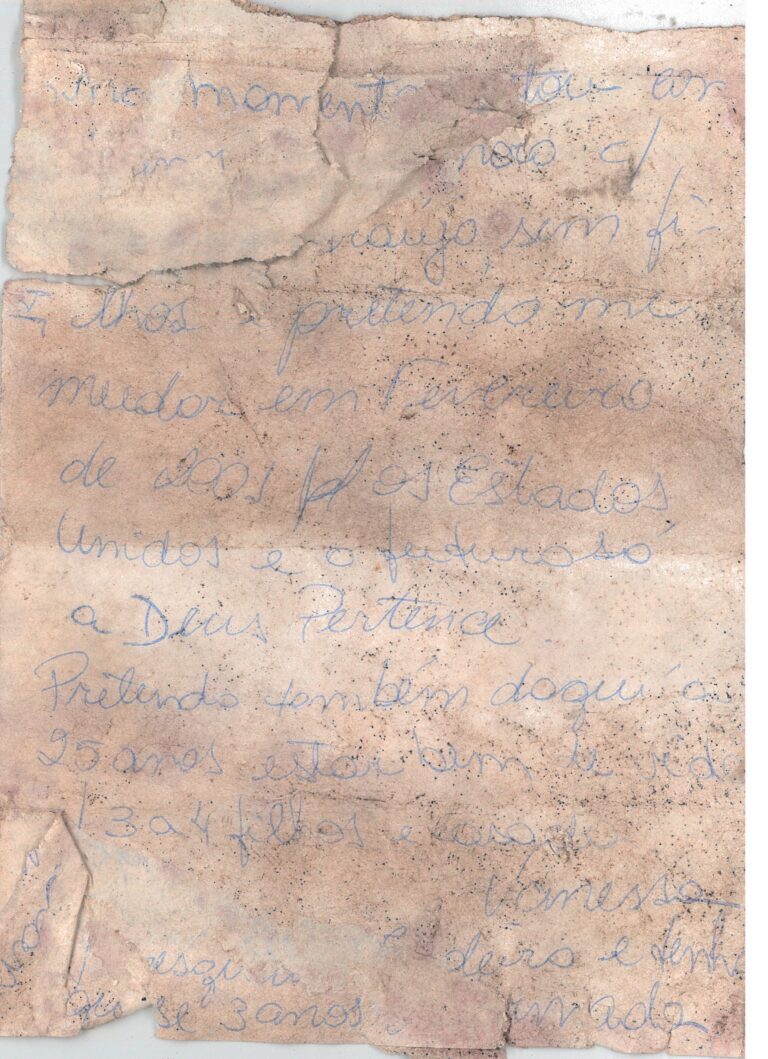 momento tou em
noro c/
raújo sem fi-
lhos e pretendo me
mudar em Fevereiro
de 2001 p/ os Estados
Unidos e o futuro só
a Deus Pertence.
Pretendo também daqui a
25 anos estar bem de vida
3 a 4 filhos e
Vanessa
deiro e tenho
3 anos